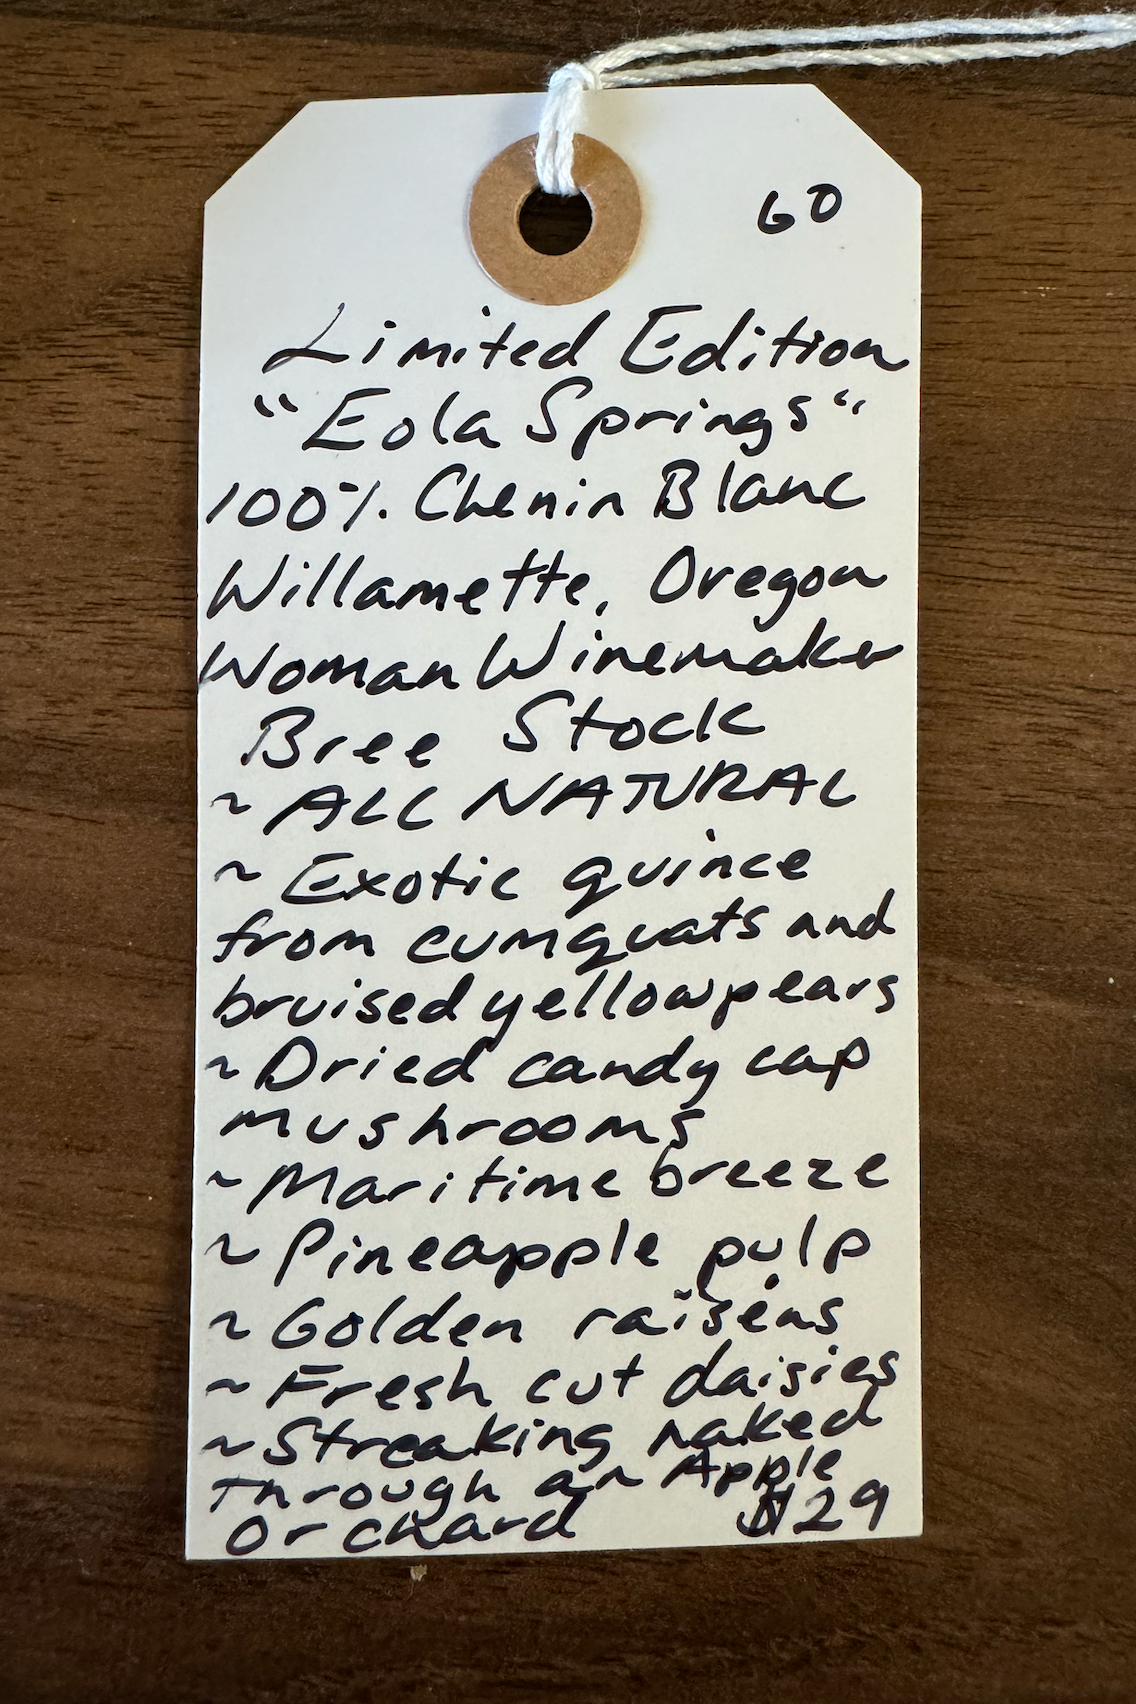 60
Limited Edition
"Eola Springs"
100% Chenin Blanc
Willamette, Oregon
Woman Winemaker
Bree Stock
~ ALL NATURAL
~ Exotic quince
from cumquats and
bruised yellow pears
~ Dried candy cap
mushrooms
~ Maritime breeze
~ Pineapple pulp
~ Golden raisens
~ Fresh cut daisies
~ Streaking naked
through an Apple
Orchard $29